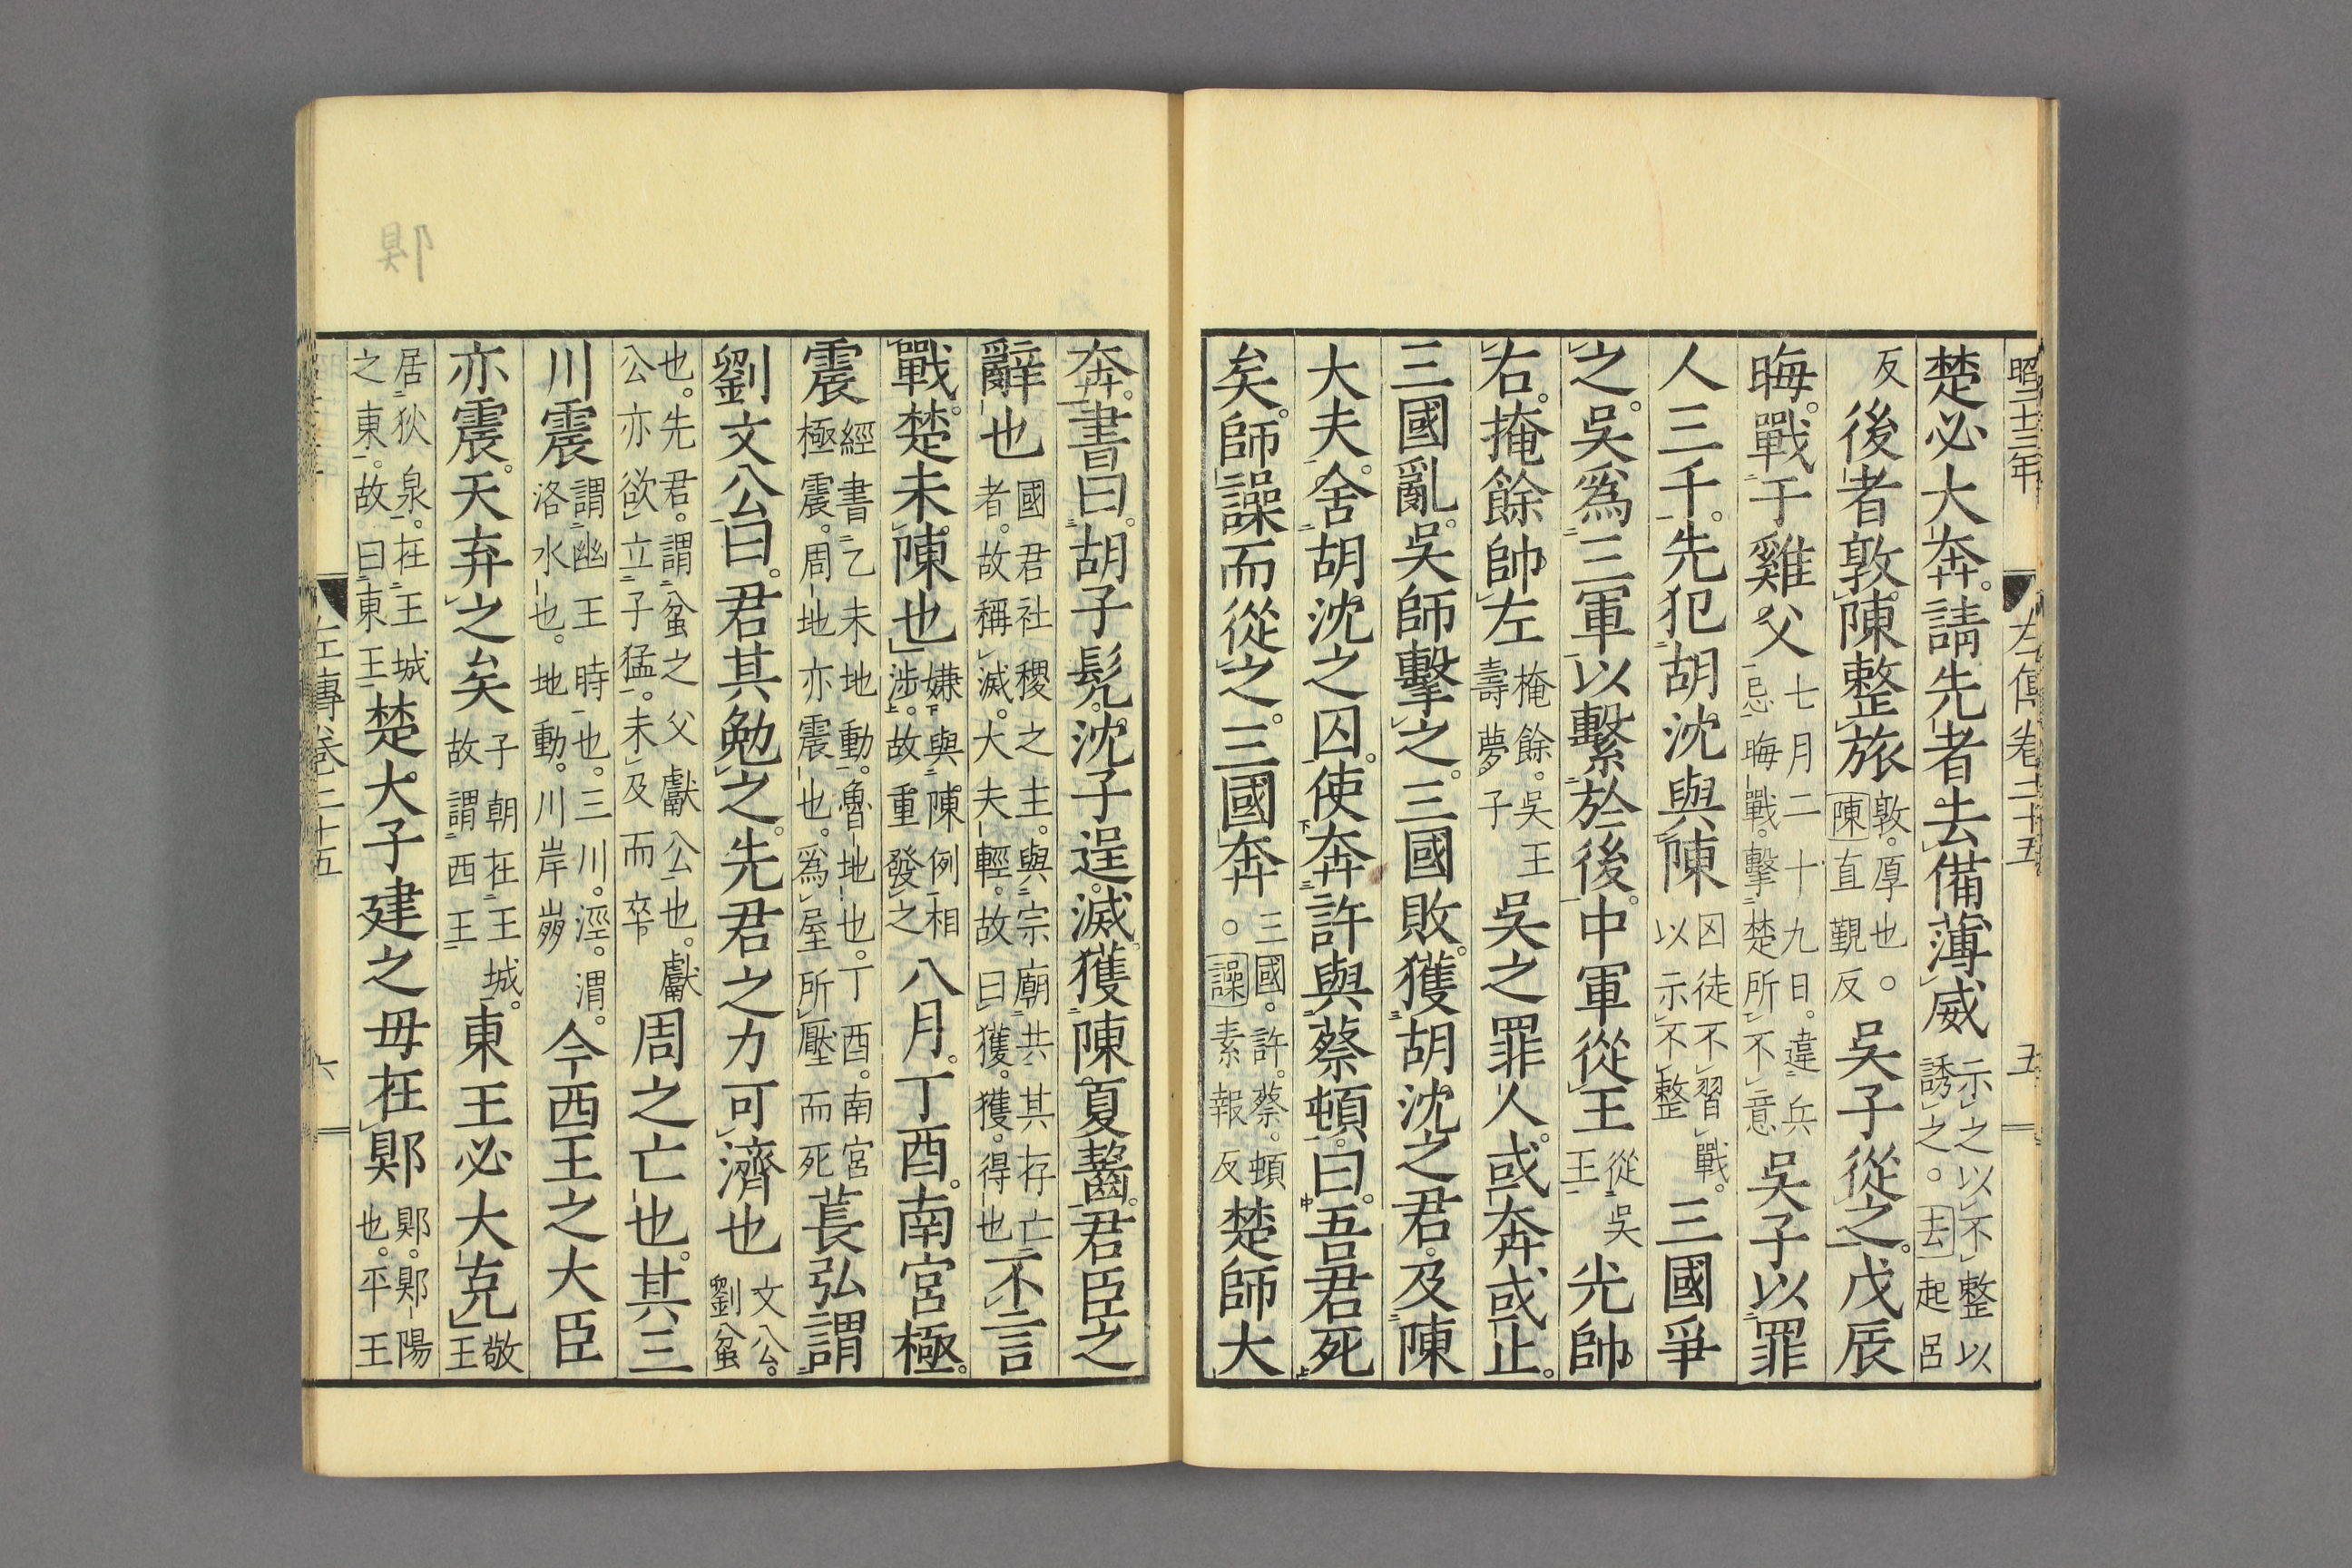 昭二十三年 左傳卷二十五 五
楚必大奔。請先者去備薄威示之以不整以誘之。去起呂
反後者敦陳整旅敦。厚也。陳直覲反吳子從之。戊辰
晦。戰于雞父七月二十九日。違兵忌晦戰。擊楚所不意吳子以罪
人三千。先犯胡沈與陳囚徒不習戰。以示不整三國爭
之。吳爲三軍以繫於後。中軍從王從吳王光帥
右。掩餘帥左掩餘。吳王壽夢子吳之罪人。或奔或止。
三國亂。吳師擊之。三國敗。獲胡沈之君。及陳
大夫。舍胡沈之囚。使奔許與蔡頓。曰。吾君死
矣。師譟而從之。三國奔三國。許。蔡。頓。譟素報反楚師大
奔。書曰。胡子髡。沈子逞。滅。獲陳夏齧。君臣之
辭也國君社稷之主。與宗廟共其存亡者。故稱滅。大夫輕。故曰獲。獲。得也不言
戰。楚未陳也嫌與陳例相涉。故重發之八月。丁酉。南宮極。
震經書乙未地動。魯地也。丁酉。南宮極震。周地亦震也。爲屋所壓而死萇弘謂
劉文公曰。君其勉之。先君之力可濟也文公。劉蚠
也。先君。謂蚠之父獻公也。獻公亦欲立子猛。未及而卒周之亡也。其三
川震謂幽王時也。三川。涇。渭。洛水也。地動。川岸崩今西王之大臣
亦震。天弃之矣子朝在王城。故謂西王東王必大克敬王
居狄泉。在王城之東。故曰東王楚大子建之母在郹郹。郹陽也。平王
左傳卷二十五 六